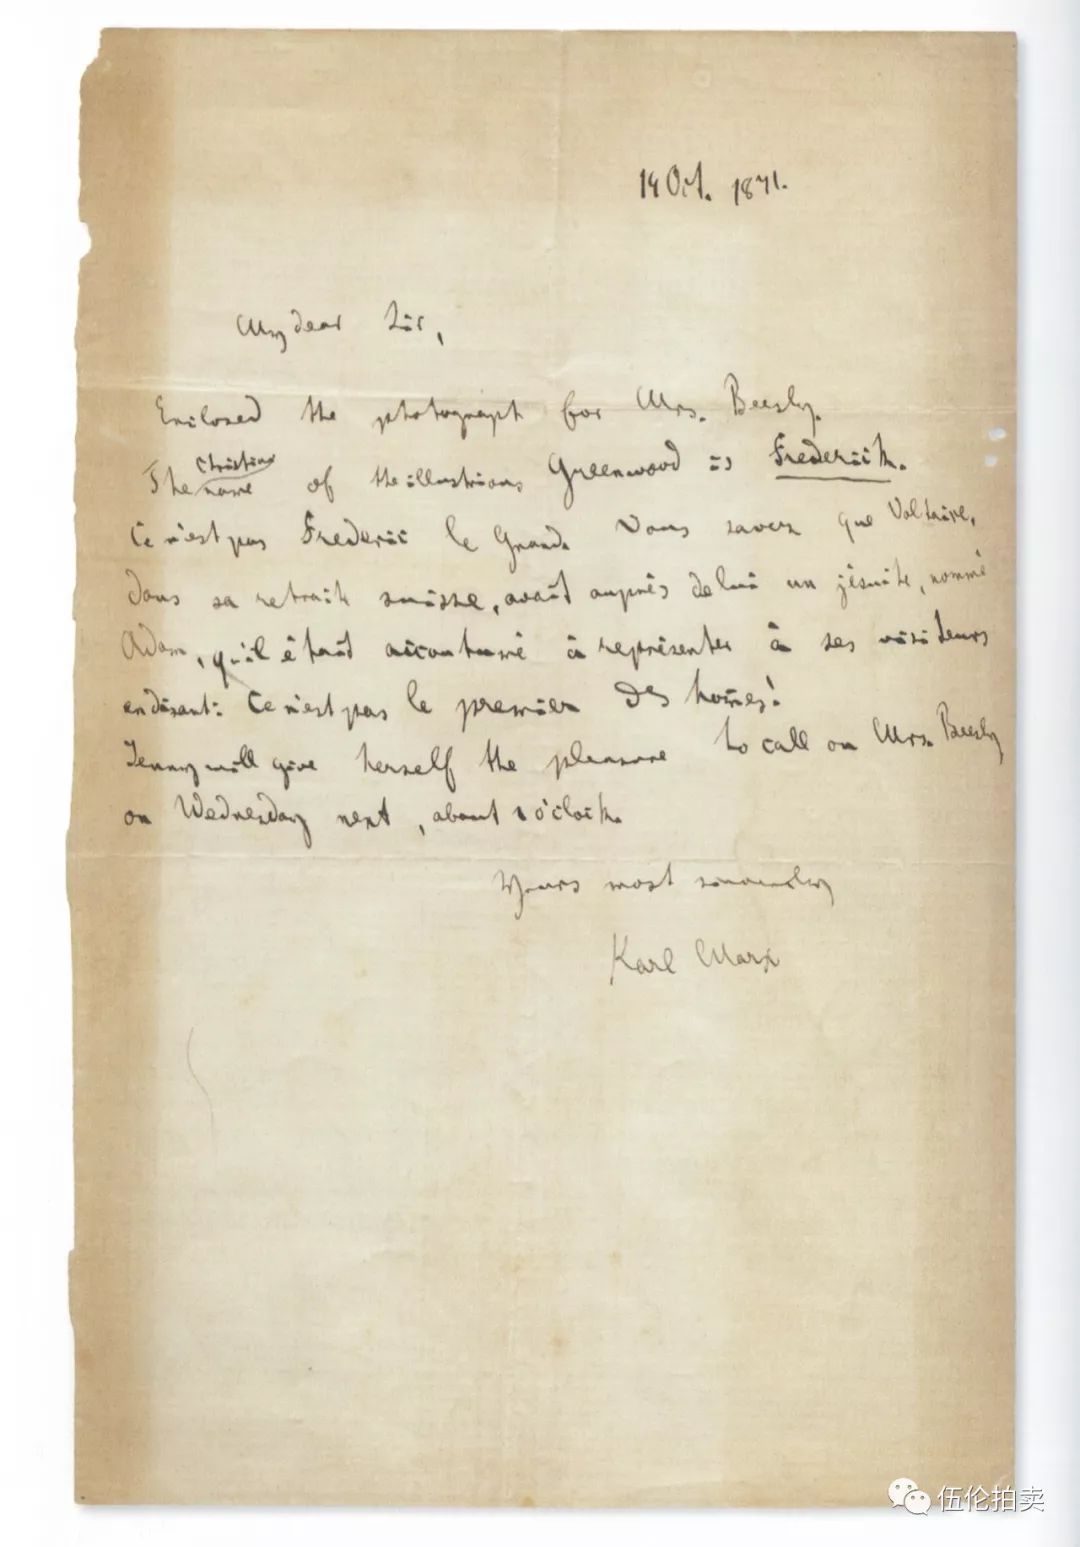 14 Oct. 1871.
My dear Sir,
Enclosed the photograph for Mrs. Beesly.
Christian
The name of the illustrious Greenwood is Frederick.
Ce n'est pas Frederic le Grand. Vous savez que Voltaire,
dans sa retraite suisse, avait auprès de lui un jésuite, nommé
Adam, qu'il était accoutumé à représenter à ses visiteurs
en disant: Ce n'est pas le premier des hom̄es!
Jenny will give herself the pleasure to call on Mrs. Beesly
on Wednesday next, about 1 o'clock.
Yours most sincerely
Karl Marx
伍伦拍卖